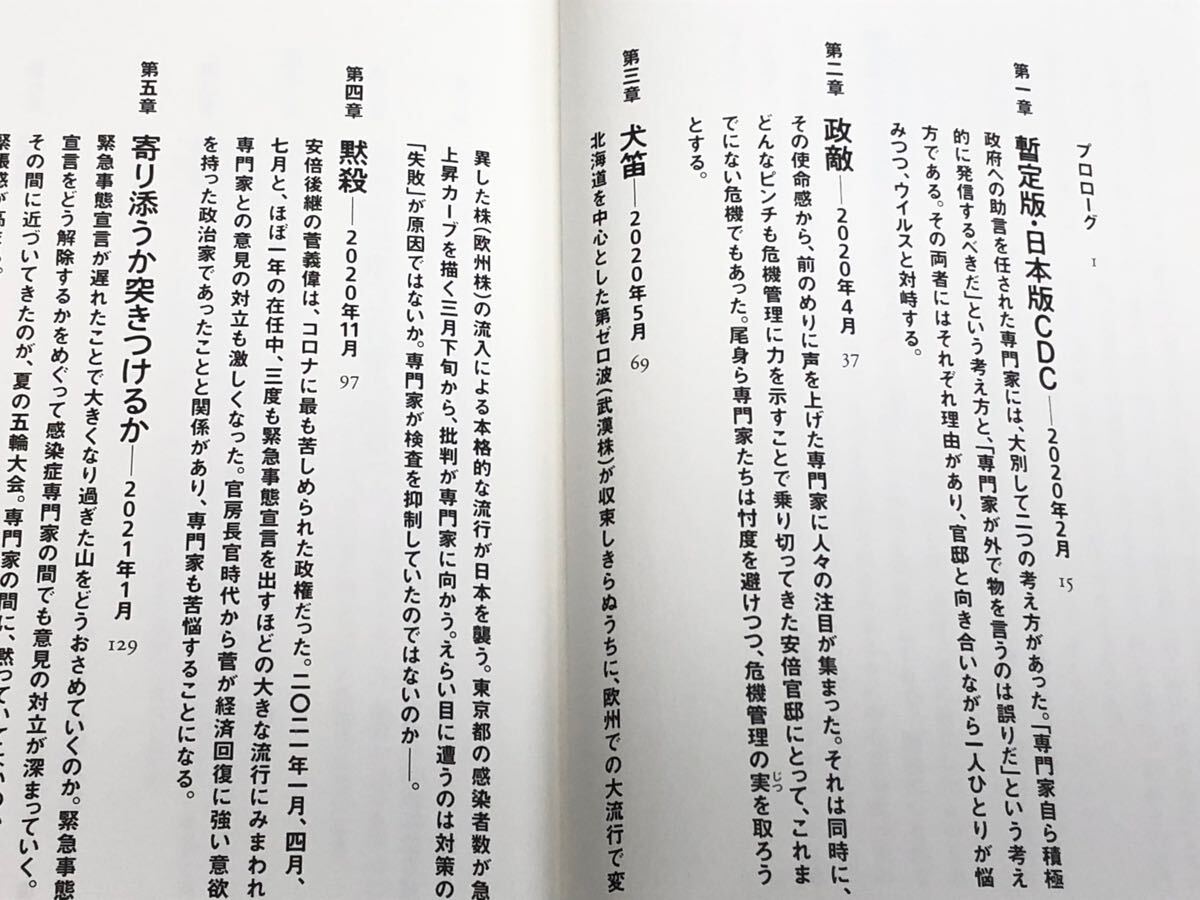 プロローグ 1
第一章 暫定版・日本版CDC――2020年2月 15
政府への助言を任された専門家には、大別して二つの考え方があった。「専門家自ら積極
的に発信するべきだ」という考え方と、「専門家が外で物を言うのは誤りだ」という考え
方である。その両者にはそれぞれ理由があり、官邸と向き合いながら一人ひとりが悩
みつつ、ウイルスと対峙する。
第二章 政敵――2020年4月 37
その使命感から、前のめりに声を上げた専門家に人々の注目が集まった。それは同時に、
どんなピンチも危機管理に力を示すことで乗り切ってきた安倍官邸にとって、これま
でにない危機でもあった。尾身ら専門家たちは忖度を避けつつ、危機管理の実じつを取ろう
とする。
第三章 犬笛――2020年5月 69
北海道を中心とした第ゼロ波(武漢株)が収束しきらぬうちに、欧州での大流行で変
異した株(欧州株)の流入による本格的な流行が日本を襲う。東京都の感染者数が急
上昇カーブを描く三月下旬から、批判が専門家に向かう。えらい目に遭うのは対策の
「失敗」が原因ではないか。専門家が検査を抑制していたのではないのか――。
第四章 黙殺――2020年11月 97
安倍後継の菅義偉は、コロナに最も苦しめられた政権だった。二〇二一年一月、四月、
七月と、ほぼ一年の在任中、三度も緊急事態宣言を出すほどの大きな流行にみまわれ
専門家との意見の対立も激しくなった。官房長官時代から菅が経済回復に強い意欲
を持った政治家であったことと関係があり、専門家も苦悩することになる。
第五章 寄り添うか突きつけるか――2021年1月 129
緊急事態宣言が遅れたことで大きくなり過ぎた山をどうおさめていくのか。緊急事態
宣言をどう解除するかをめぐって感染症専門家の間でも意見の対立が深まっていく。
その間に近づいてきたのが、夏の五輪大会。専門家の間に、黙っていてよいのか
緊張感が高まる。